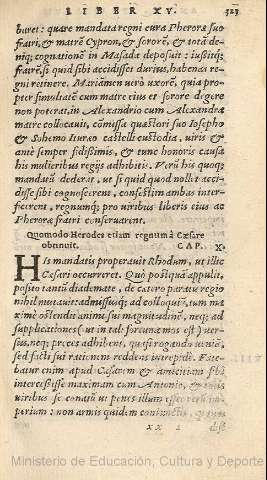 LIBER XV. 323
baret: quare mandata regni cura Pherorae suo
fratri, & matrē Cypron, & sororē, & totā deniq;
cognationē in Masada deposuit: iussitq;
fratrē, si quid sibi accidisset durius, habenas regni
retinere. Mariāmen verò uxorē, quia propter
simultatē cum matre eius et sorore degere
non poterat, in Alexandrio cum Alexandra
matre collocauit, comissa quaestori suo Iosepho
& Sohemo Itureo castelli custodia, uiris &
antè semper fidissimis, & tunc honoris causa
his mulieribus regijs adhibitis. Verū his quoq;
mandauit dederat, ut si quid nollet accidisse
sibi cognoscerent, confestim ambas interficerent,
regnumq; pro uiribus liberis eius ac
Pherorae fratri conseruarent.
Quomodo Herodes etiam regnum à Caesare
obtinuit. CAP. X.
HIs mandatis properauit Rhodum, ut illic
Caesari occurreret. Quò postquā appulit,
posito tantū diademate, de caetero paratu regio
nihil mutauit: admissusq; ad colloquiū, tum maximè
ostendit animi sui magnitudinē, neq;
supplicationes (ut in tali fortuna mos est) uersus,
neq; preces adhibens, quasi rogando ueniā,
sed facti sui rationem reddens intrepidè. Fatebatur
enim apud Caesarem & amicitiam sibi
intercessisse maximam cum Antonio, &
uiribus se conatū ut penes illum esset
imperium: non armis quidem coniunctis,
xx
Ministerio de Educación, Cultura y Deporte